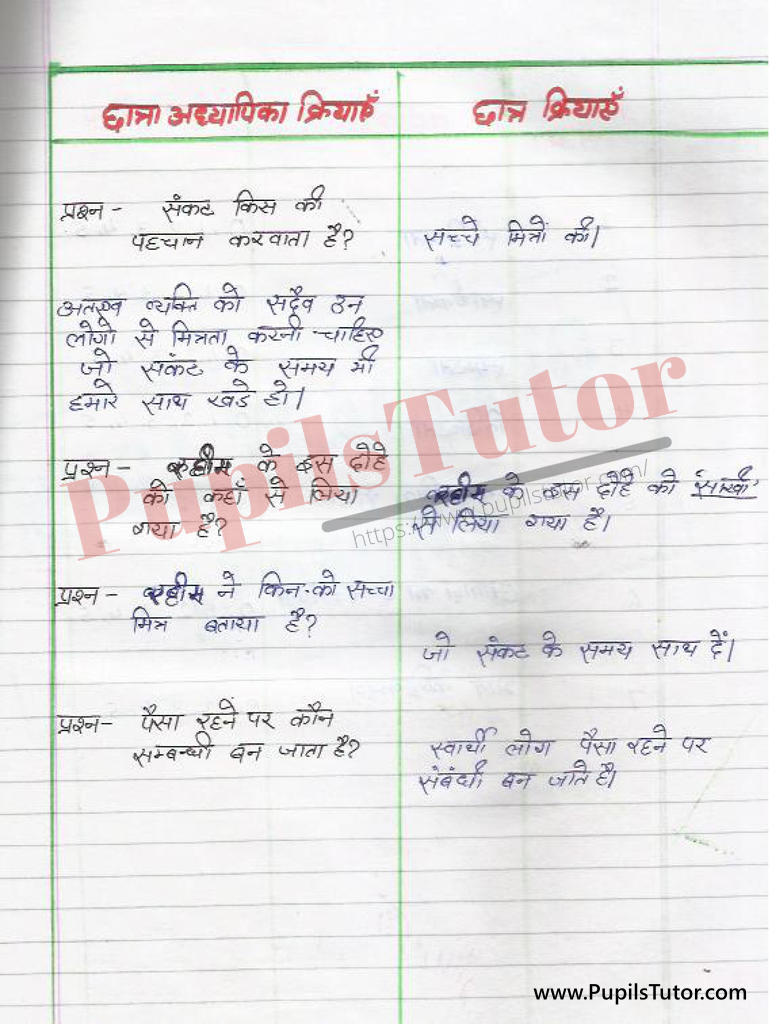 छात्रा अध्यापिका क्रियाएँ
छात्र क्रियाएँ
प्रश्न - संकट किस की
पहचान करवाता है?
सच्चे मित्रों की।
अतएव व्यक्ति को सदैव उन
लोगो से मित्रता करनी चाहिए
जो संकट के समय भी
हमारे साथ खडे हो।
प्रश्न - रहीम के इस दोहे
को कहाँ से लिया
गया है?
रहीम के इस दोहे को 'साखी'
से लिया गया है।
प्रश्न - रहीम ने किन-को सच्चा
मित्र बताया है?
जो संकट के समय साथ दें।
प्रश्न- पैसा रहने पर कौन
सम्बन्धी बन जाता है?
स्वार्थी लोग पैसा रहने पर
संबंधी बन जाते है।
PupilsTutor
https://www.pupilstutor.com/
www.PupilsTutor.com